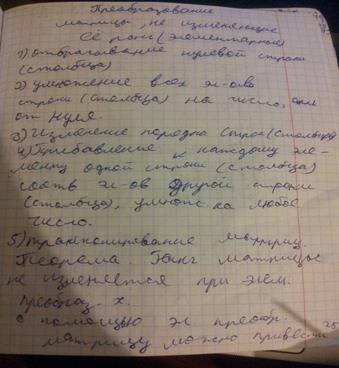 Преобразование
матрицы, не изменяющие
Её ранг (элементарные)
1) отбрасывание нулевой строки
(столбца)
2) умножение всех эл-ов
строки (столбца) на число, отл
от нуля.
3) Изменение порядка строк (столбцов)
4) Прибавление к каждому эле-
менту одной строки (столбца)
соотв эл-ов другой строки
(столбца), умнож. на любое
число.
5) транспонирование матриц.
Теорема. Ранг матрицы
не изменяется при элем.
преобраз-х.
с помощью эл преобр.
матрицу можно привести